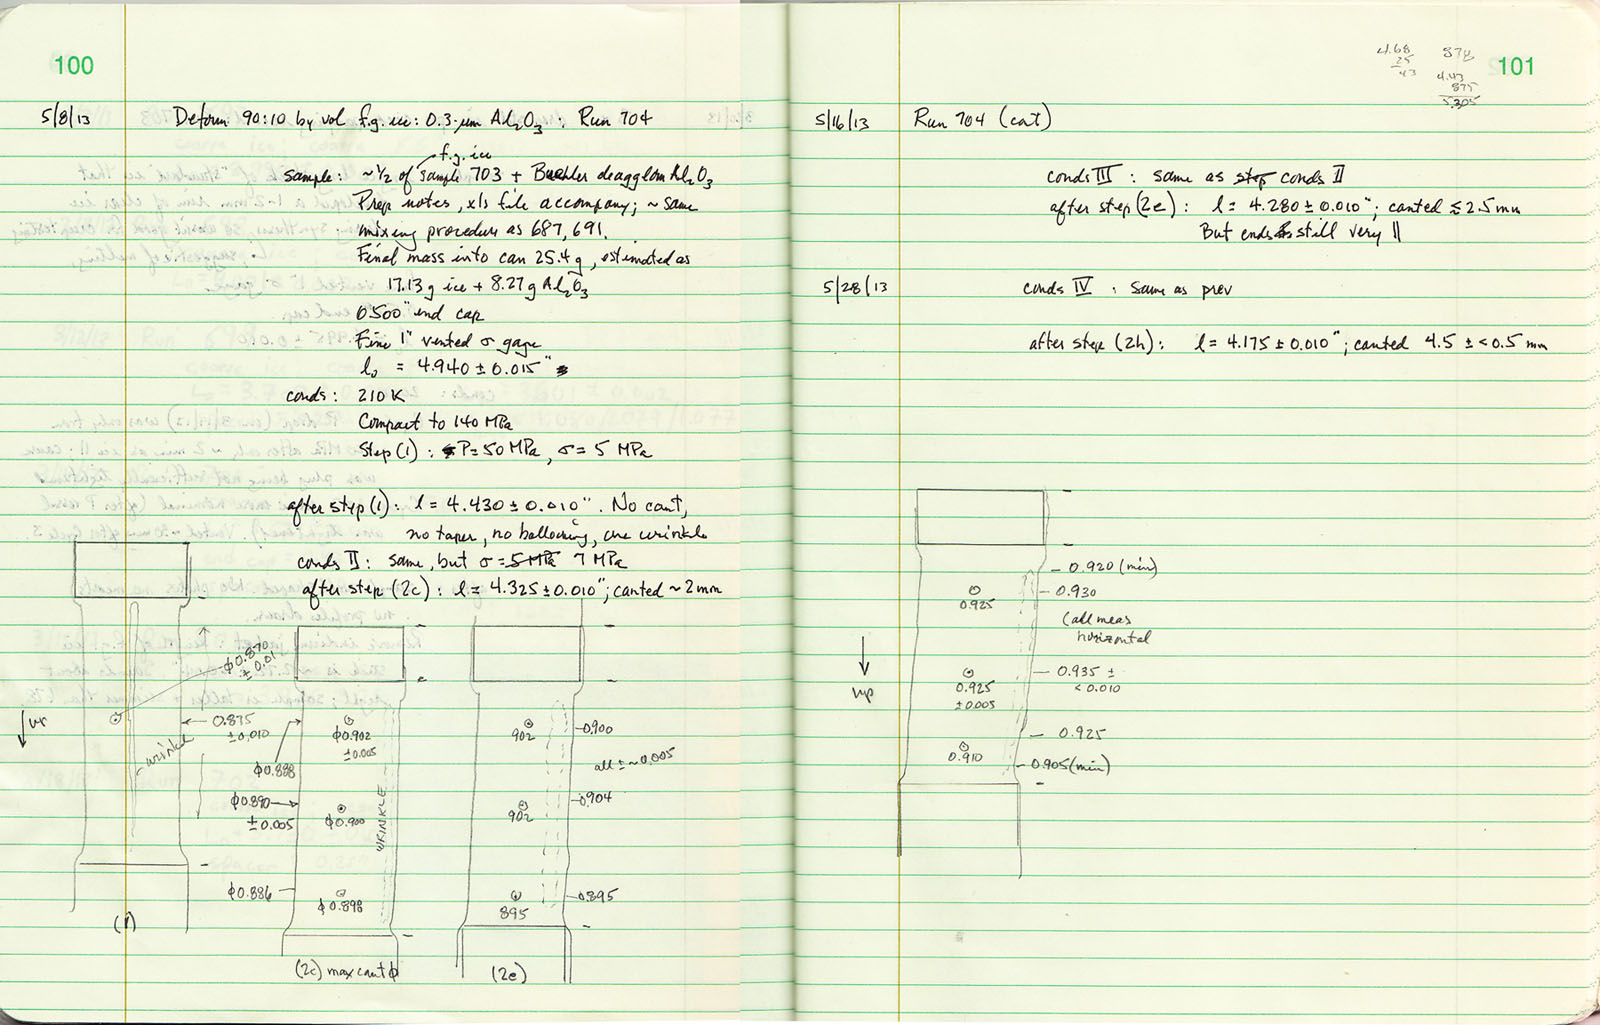 100
5/8/13 Deform 90:10 by vol f.g. ice: 0.3-µm Al2O3 : Run 704
f.g. ice
sample: ~1/2 of sample 703 + Buehler deagglom Al2O3
Prep notes, xls file accompany; ~ same
mixing procedure as 687, 691.
Final mass into can 25.4g, estimated as
17.13g ice + 8.27g Al2O3
0.500" end cap
Fine 1" vented σ gage
l0 = 4.940 ± 0.015"
conds: 210 K
Compact to 140 MPa
Step (1): P = 50 MPa, σ = 5 MPa
after step (1): l = 4.430 ± 0.010". No cant,
no taper, no ballooning, one wrinkle
conds II: same, but σ = 5 MPa 7 MPa
after step (2c): l = 4.325 ± 0.010"; canted ~2mm
up
ϕ0.870
± 0.01
0.875
±0.010
wrinkle
(1)
ϕ0.902
±0.005
ϕ0.888
ϕ0.890
±0.005
ϕ0.900
WRINKLE
ϕ0.886
ϕ0.898
(2c) max cant ϕ
902
0.900
all ± ~0.005
902
0.904
895
0.895
(2e)
4.68
25
43
878
4.43
875
5.305
101
5/16/13 Run 704 (cont)
conds III : same as step conds II
after step (2e): l = 4.280 ± 0.010"; canted ≤ 2.5 mm
But ends still very ||
5/28/13 conds IV : Same as prev
after step (2h): l = 4.175 ± 0.010"; canted 4.5 ± <0.5 mm
0.920 (min)
0.925
0.930
(all meas
horizontal
up
0.925
±0.005
0.935 ±
<0.010
0.925
0.910
0.905 (min)